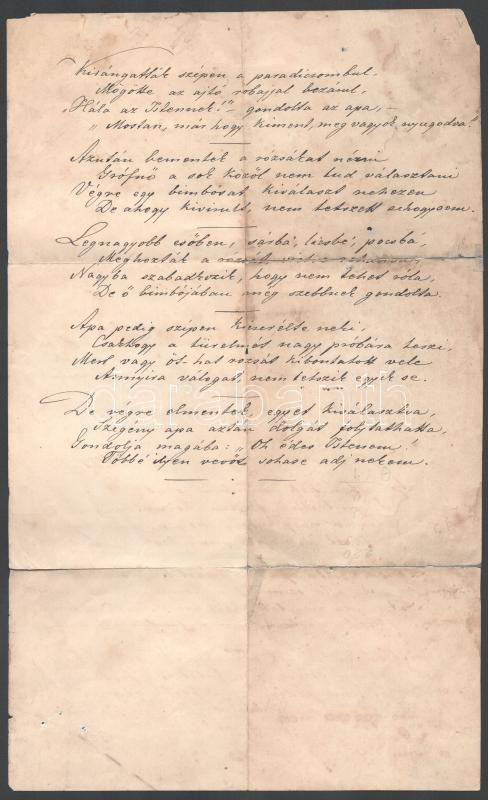 Kirángatták szépen a paradicsombul.
Mögötte az ajtó robajjal bezárul.
„Hála az Istennek!"– gondolta az apa, –
„Mostan, már hogy kiment, megvagyok nyugodva."
Azután bementek a rózsákat nézni
Grófnő a sok közöl nem tud választani
Végre egy bimbósat kiválaszt nehezen
De ahogy kivirult, nem tetszett sehogysem.
Legnagyobb esőben, sárbá, licsbé, pocsbá,
Meghozták a
Nagyba szabadkozik, hogy nem tehet róla
De ő bimbójában még szebbnek gondolta.
Apa pedig szépen kicserélte neki,
Csakhogy a türelmét nagy próbára teszi,
Mert vagy öt-hat rózsát kibontatott vele
Annyira válogat, nem tetszik egyik se.
De végre elmentek egyet kiválasztva,
Szegény apa aztán dolgát folytathatta,
Gondolja magába: „Oh édes Istenem!"
Többé ilyen vevőt sohase adj nekem.
darabanth